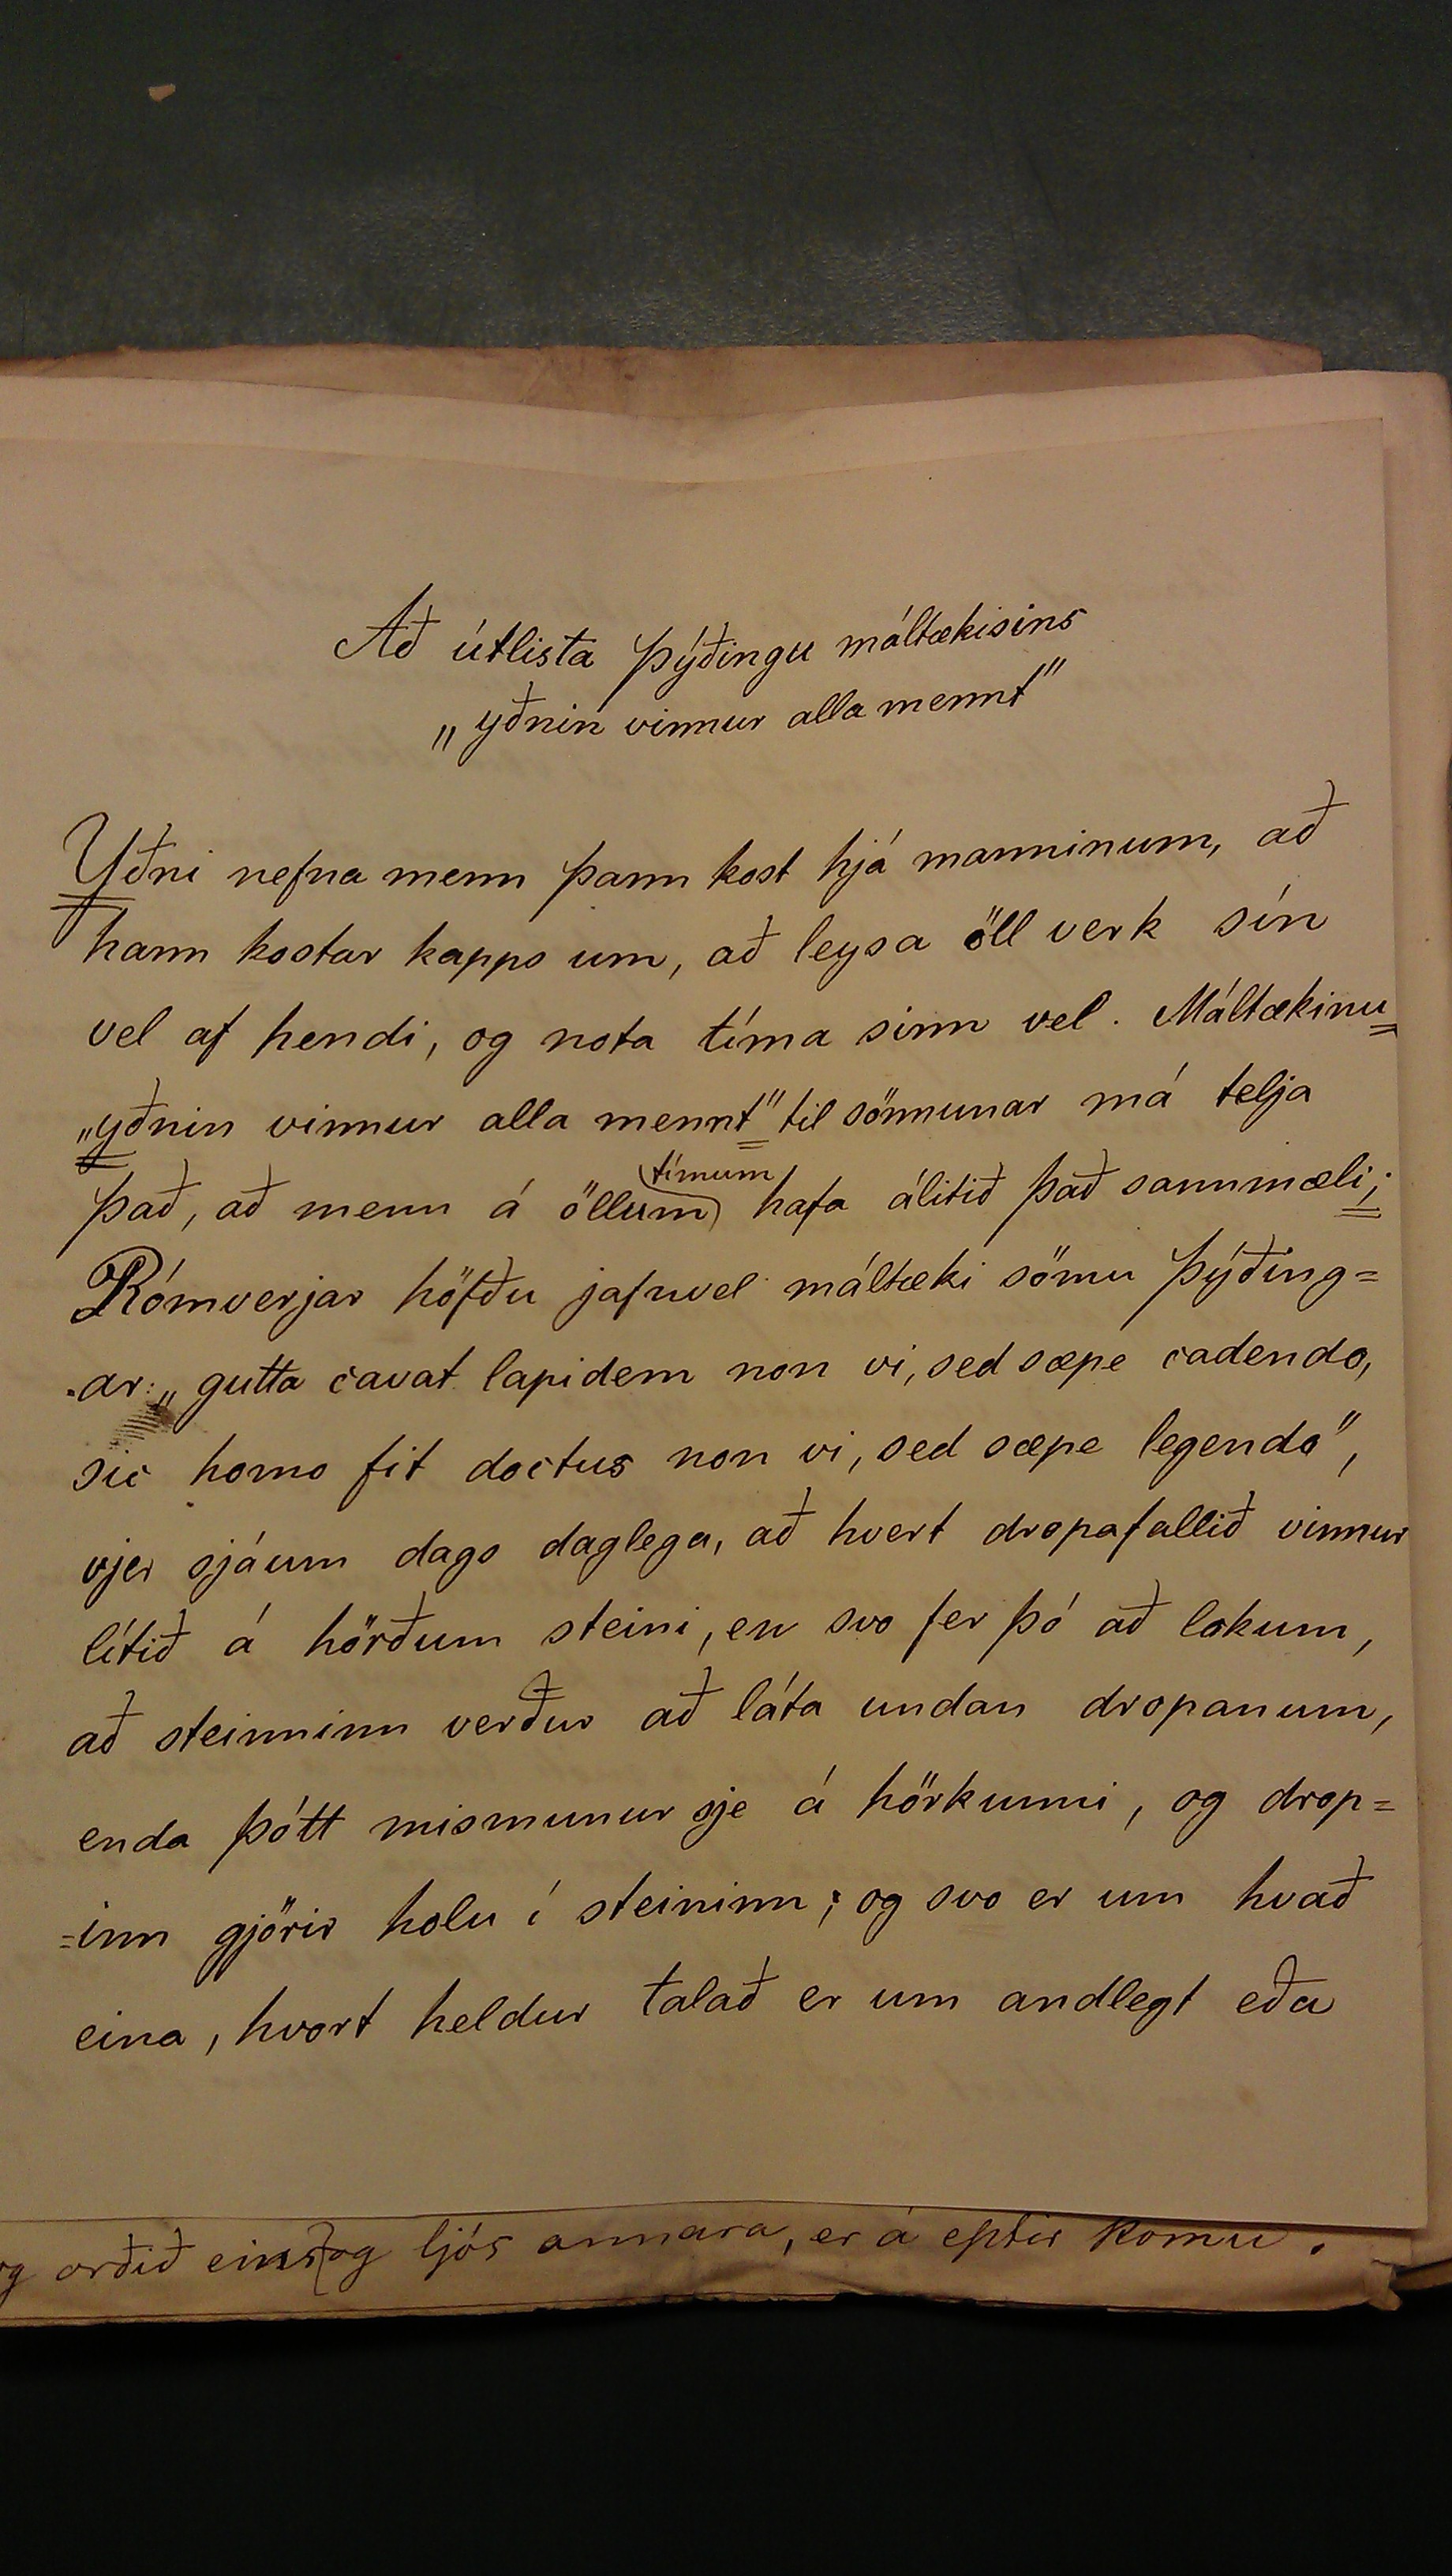 Að útlista þýðingu máltækisins
„yðnin vinnur alla mennt"
Yðni nefna menn þann kost hjá manninum, að
hann kostar kapps um, að leysa öll verk sín
vel af hendi, og nota tíma sinn vel. Máltækinu
„yðnin vinnur alla mennt" til sönnunar má telja
tímum
það, að menn á öllum hafa álitið það sannmæli;
Rómverjar höfðu jafnvel máltæki sömu þýðing=
-ar: „gutta cavat lapidem non vi, sed sæpe cadendo,
sic homo fit doctus non vi, sed sæpe legendo",
vjer sjáum dags daglega, að hvert dropafallið vinnur
lítið á hörðum steini, en svo fer þó að lokum,
að steinninn verður að láta undan dropanum,
enda þótt mismunur sje á hörkunni, og drop=
=inn gjörir holu í steininn; og svo er um hvað
eina, hvort heldur talað er um andlegt eða
og orðið eins og ljós annara, er á eptir komu.